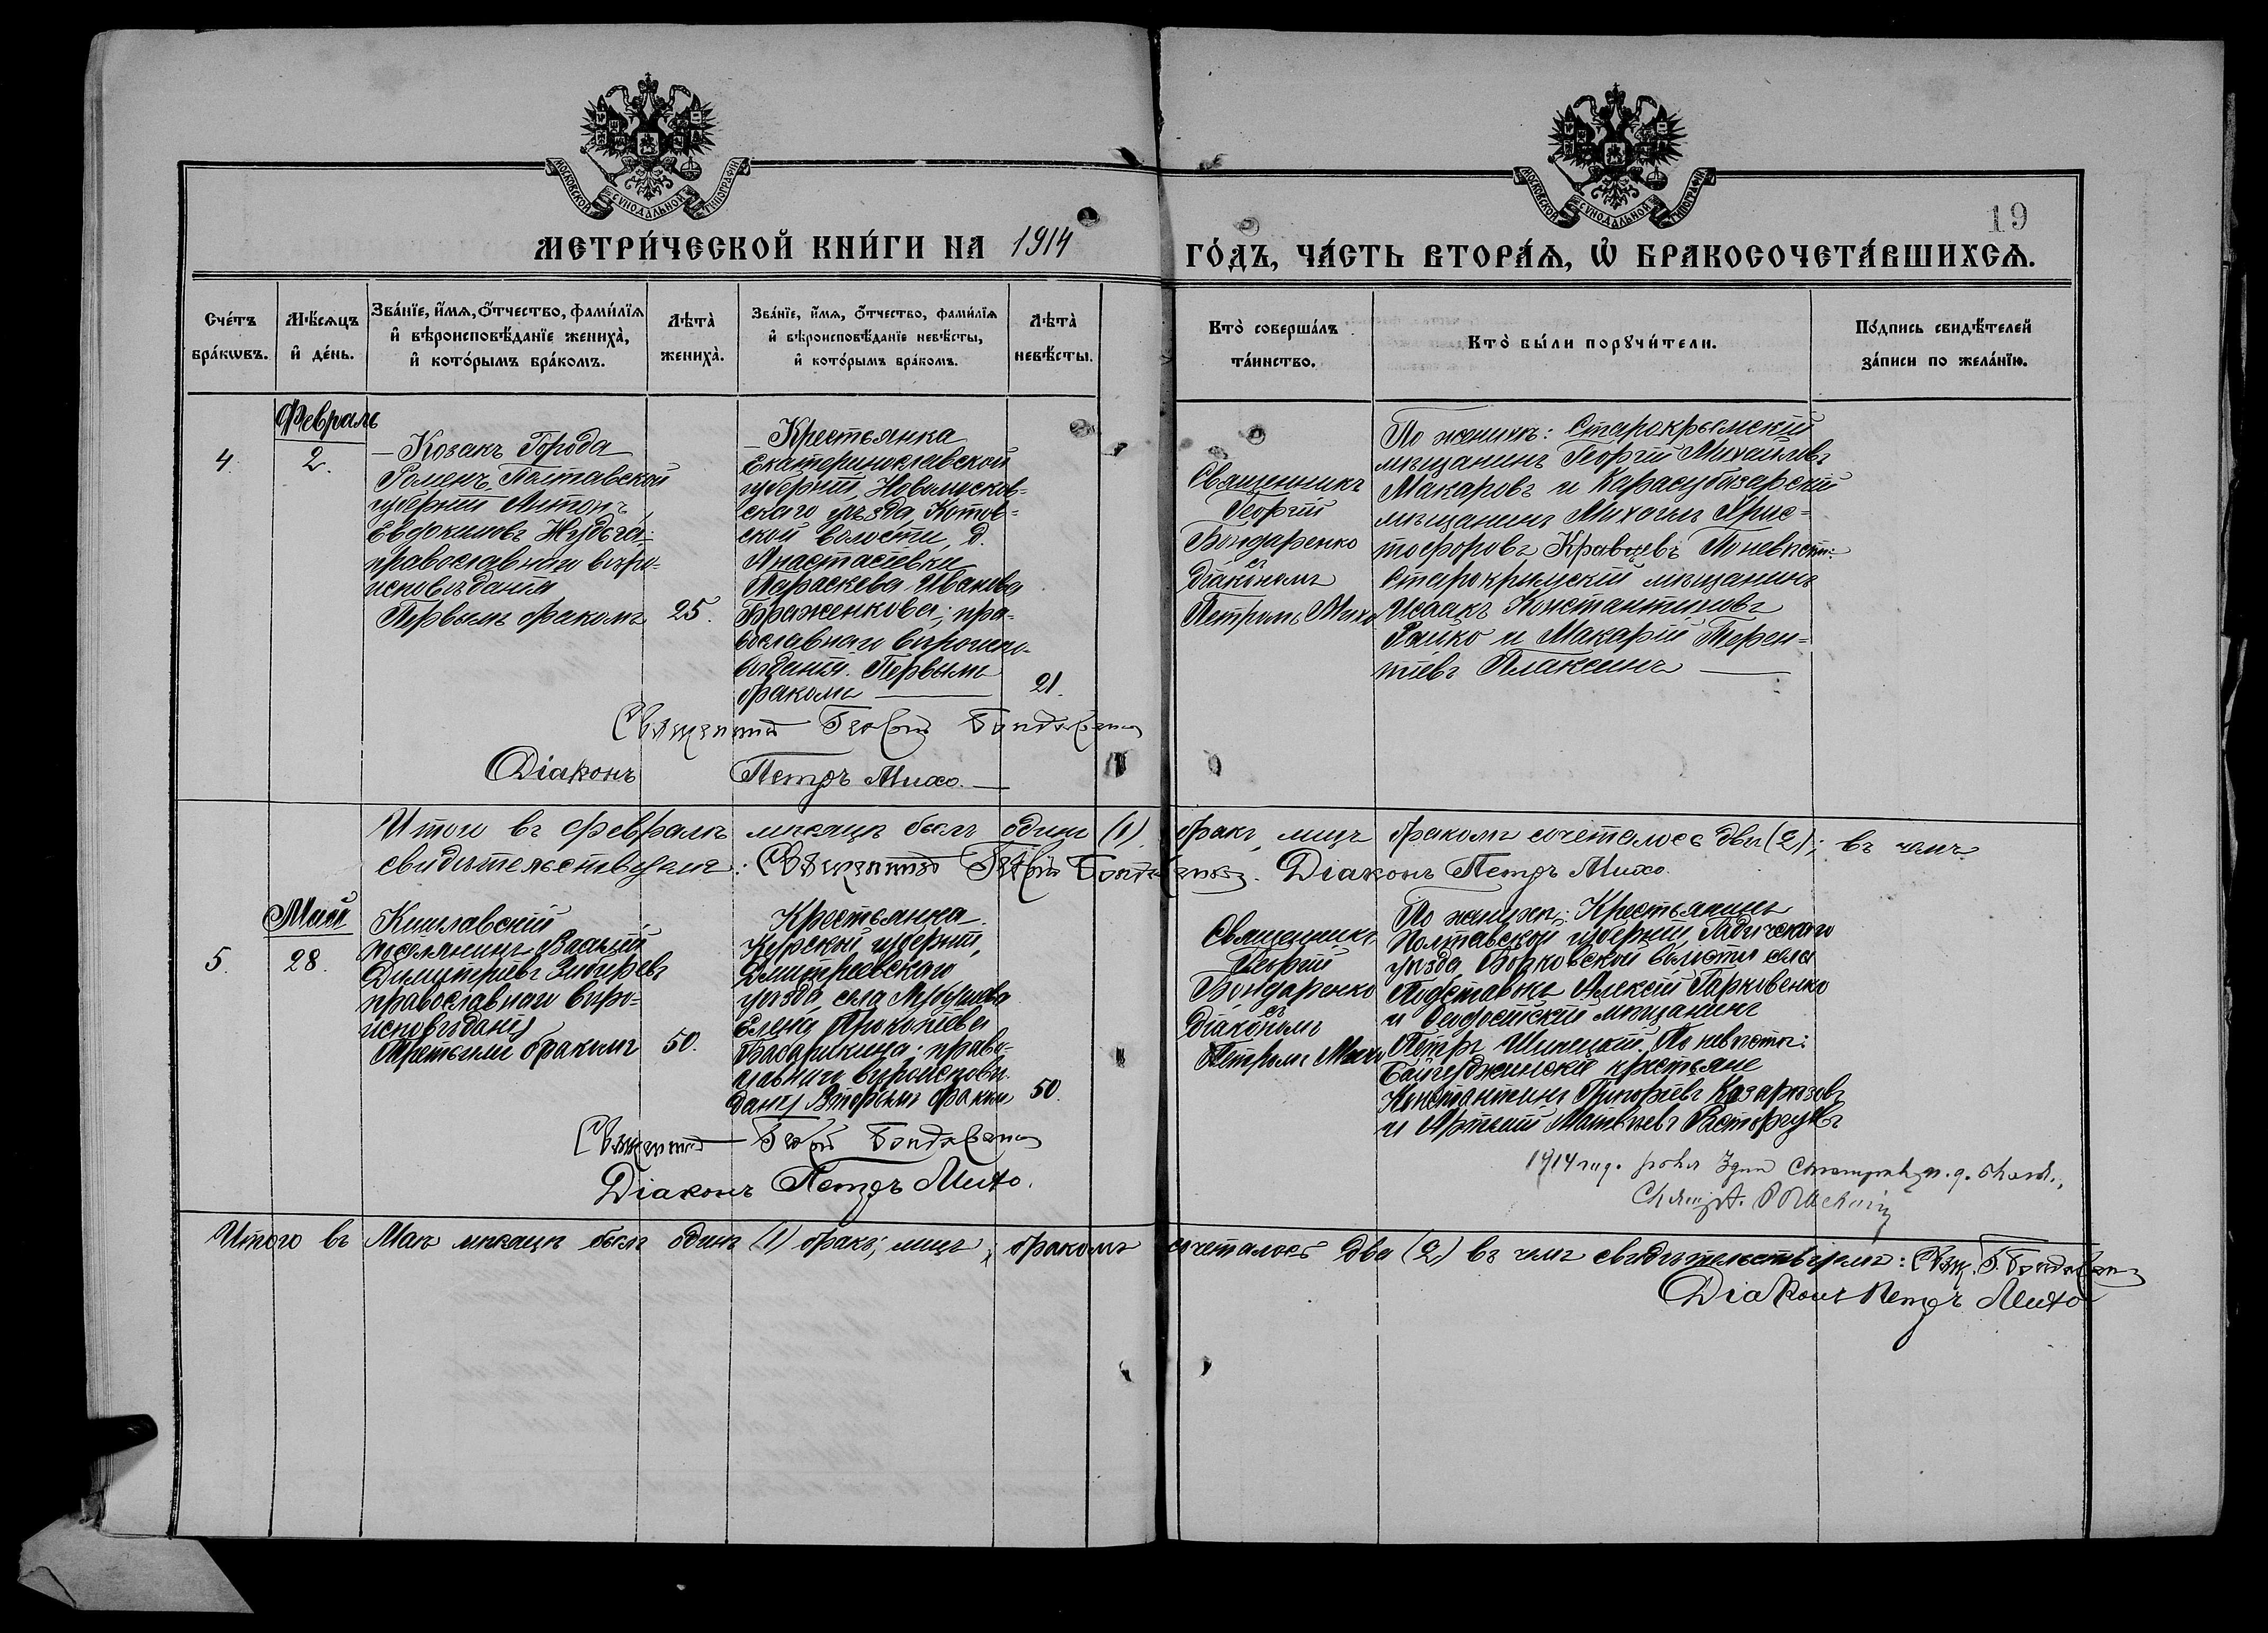 МОСКОВСКОЙ СѴНОДАЛЬНОЙ ТИПОГРАФІИ
МОСКОВСКОЙ СѴНОДАЛЬНОЙ ТИПОГРАФІИ
19
МЕТРИ́ЧЕСКОЙ КНИ́ГИ НА 1914
ГО́ДЪ, ЧА́СТЬ ВТОРА́Ѧ, Ѽ БРАКОСОЧЕТА́ВШИХСѦ.
Сче́тъ бра́кѡвъ.
Мѣ́сѧцъ и҆ де́нь.
Зва́нїе, и҆́мѧ, ѻ҆́тчество, фами́лїѧ
и҆ вѣроисповѣ́данїе жениха̀,
и҆ кото́рымъ бра́комъ.
Лѣта̀ жениха̀.
Зва́нїе, и҆́мѧ, ѻ҆́тчество, фами́лїѧ
и҆ вѣроисповѣ́данїе невѣ́сты,
и҆ кото́рымъ бра́комъ.
Лѣта̀ невѣ́сты.
Кто̀ соверша́лъ та́инство.
Кто̀ бы́ли порꙋчи́тели.
По́дпись свидѣ́телей за́писи по жела́нїю.
4.
Февраль
2.
Козакъ Города
Роменъ, Полтавской
губерніи Антонъ
Евдокимовъ Нудьга;
православнаго вѣро-
исповѣданія
Первымъ бракомъ
25.
Крестьянка
Екатеринославской
губерніи, Новомосков-
скаго уѣзда,
ской волости, д.
Анастасіевки
Параскева Иванова
Браженкова; пра-
вославнаго вѣроиспо-
вѣданія. Первымъ
бракомъ
21.
Священникъ
Георгій
Бондаренко
съ
Діакономъ
Петромъ Михо
По женихѣ: Старокрымскій
мѣщанинъ Георгій Михайловъ
Макаровъ и Карасубазарскій
мѣщанинъ Михаилъ Хрис-
тофоровъ Кравцевъ По невѣстѣ:
Старокрымскій мѣщанинъ
Исаакъ Константиновъ
и Макарій Терен-
тіевъ Плаксинъ
Священникъ Георгій Бондаренко
Діаконъ Петръ Михо.
Итого въ Февралѣ мѣсяцѣ былъ одинъ (1) бракъ, лицъ бракомъ сочеталось два (2); въ чемъ
свидѣтельствуемъ: Священникъ Георгій Бондаренко. Діаконъ Петръ Михо.
5.
Май
28.
Кишлавскій
поселянинъ Василій
Димитріевъ
православнаго вѣро-
исповѣданія
Третьимъ бракомъ
50.
Крестьянка
Курской губерніи,
Дмитріевскаго
уѣзда, села
Елена Прокопіева
правос-
лавнаго вѣроисповѣ-
данія Вторымъ бракомъ
50.
Священникъ
Георгій
Бондаренко
съ
Діакономъ
Петромъ Михо
По женихѣ: Крестьянинъ
Полтавской губерніи, Гадячскаго
уѣзда, Борковской волости села
Подставки Алексій Гаркавенко
и Ѳеодосійскій мѣщанинъ
Петръ По невѣстѣ:
крестьяне
Константинъ Григоріевъ
и Артемій Матвѣевъ
Священникъ Георгій Бондаренко
Діаконъ Петръ Михо.
1914 год.
Итого въ Маѣ мѣсяцѣ былъ одинъ (1) бракъ; лицъ бракомъ сочеталось два (2) въ чемъ свидѣтельствуемъ: Свящ. Г. Бондаренко
Діаконъ Петръ Михо